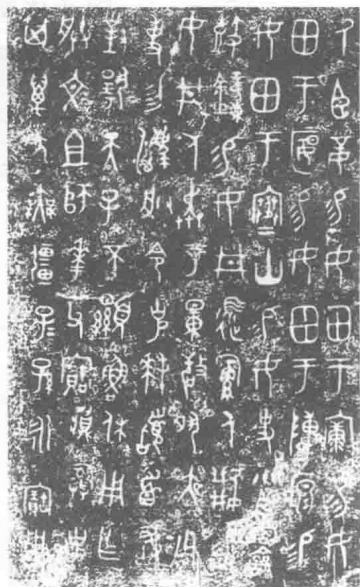 氒臣妾易女田于康易女
田于匽易女田于陴原易
女田于寒山易女史小臣霝龠
鼓鐘易女井𠛱人
女井人奔于量敬夙夜用
事勿灋朕令克拜首敢
對揚天子不顯魯休用乍
朕文且師華父寶彝克
其萬年無彊子子孫孫永寶用